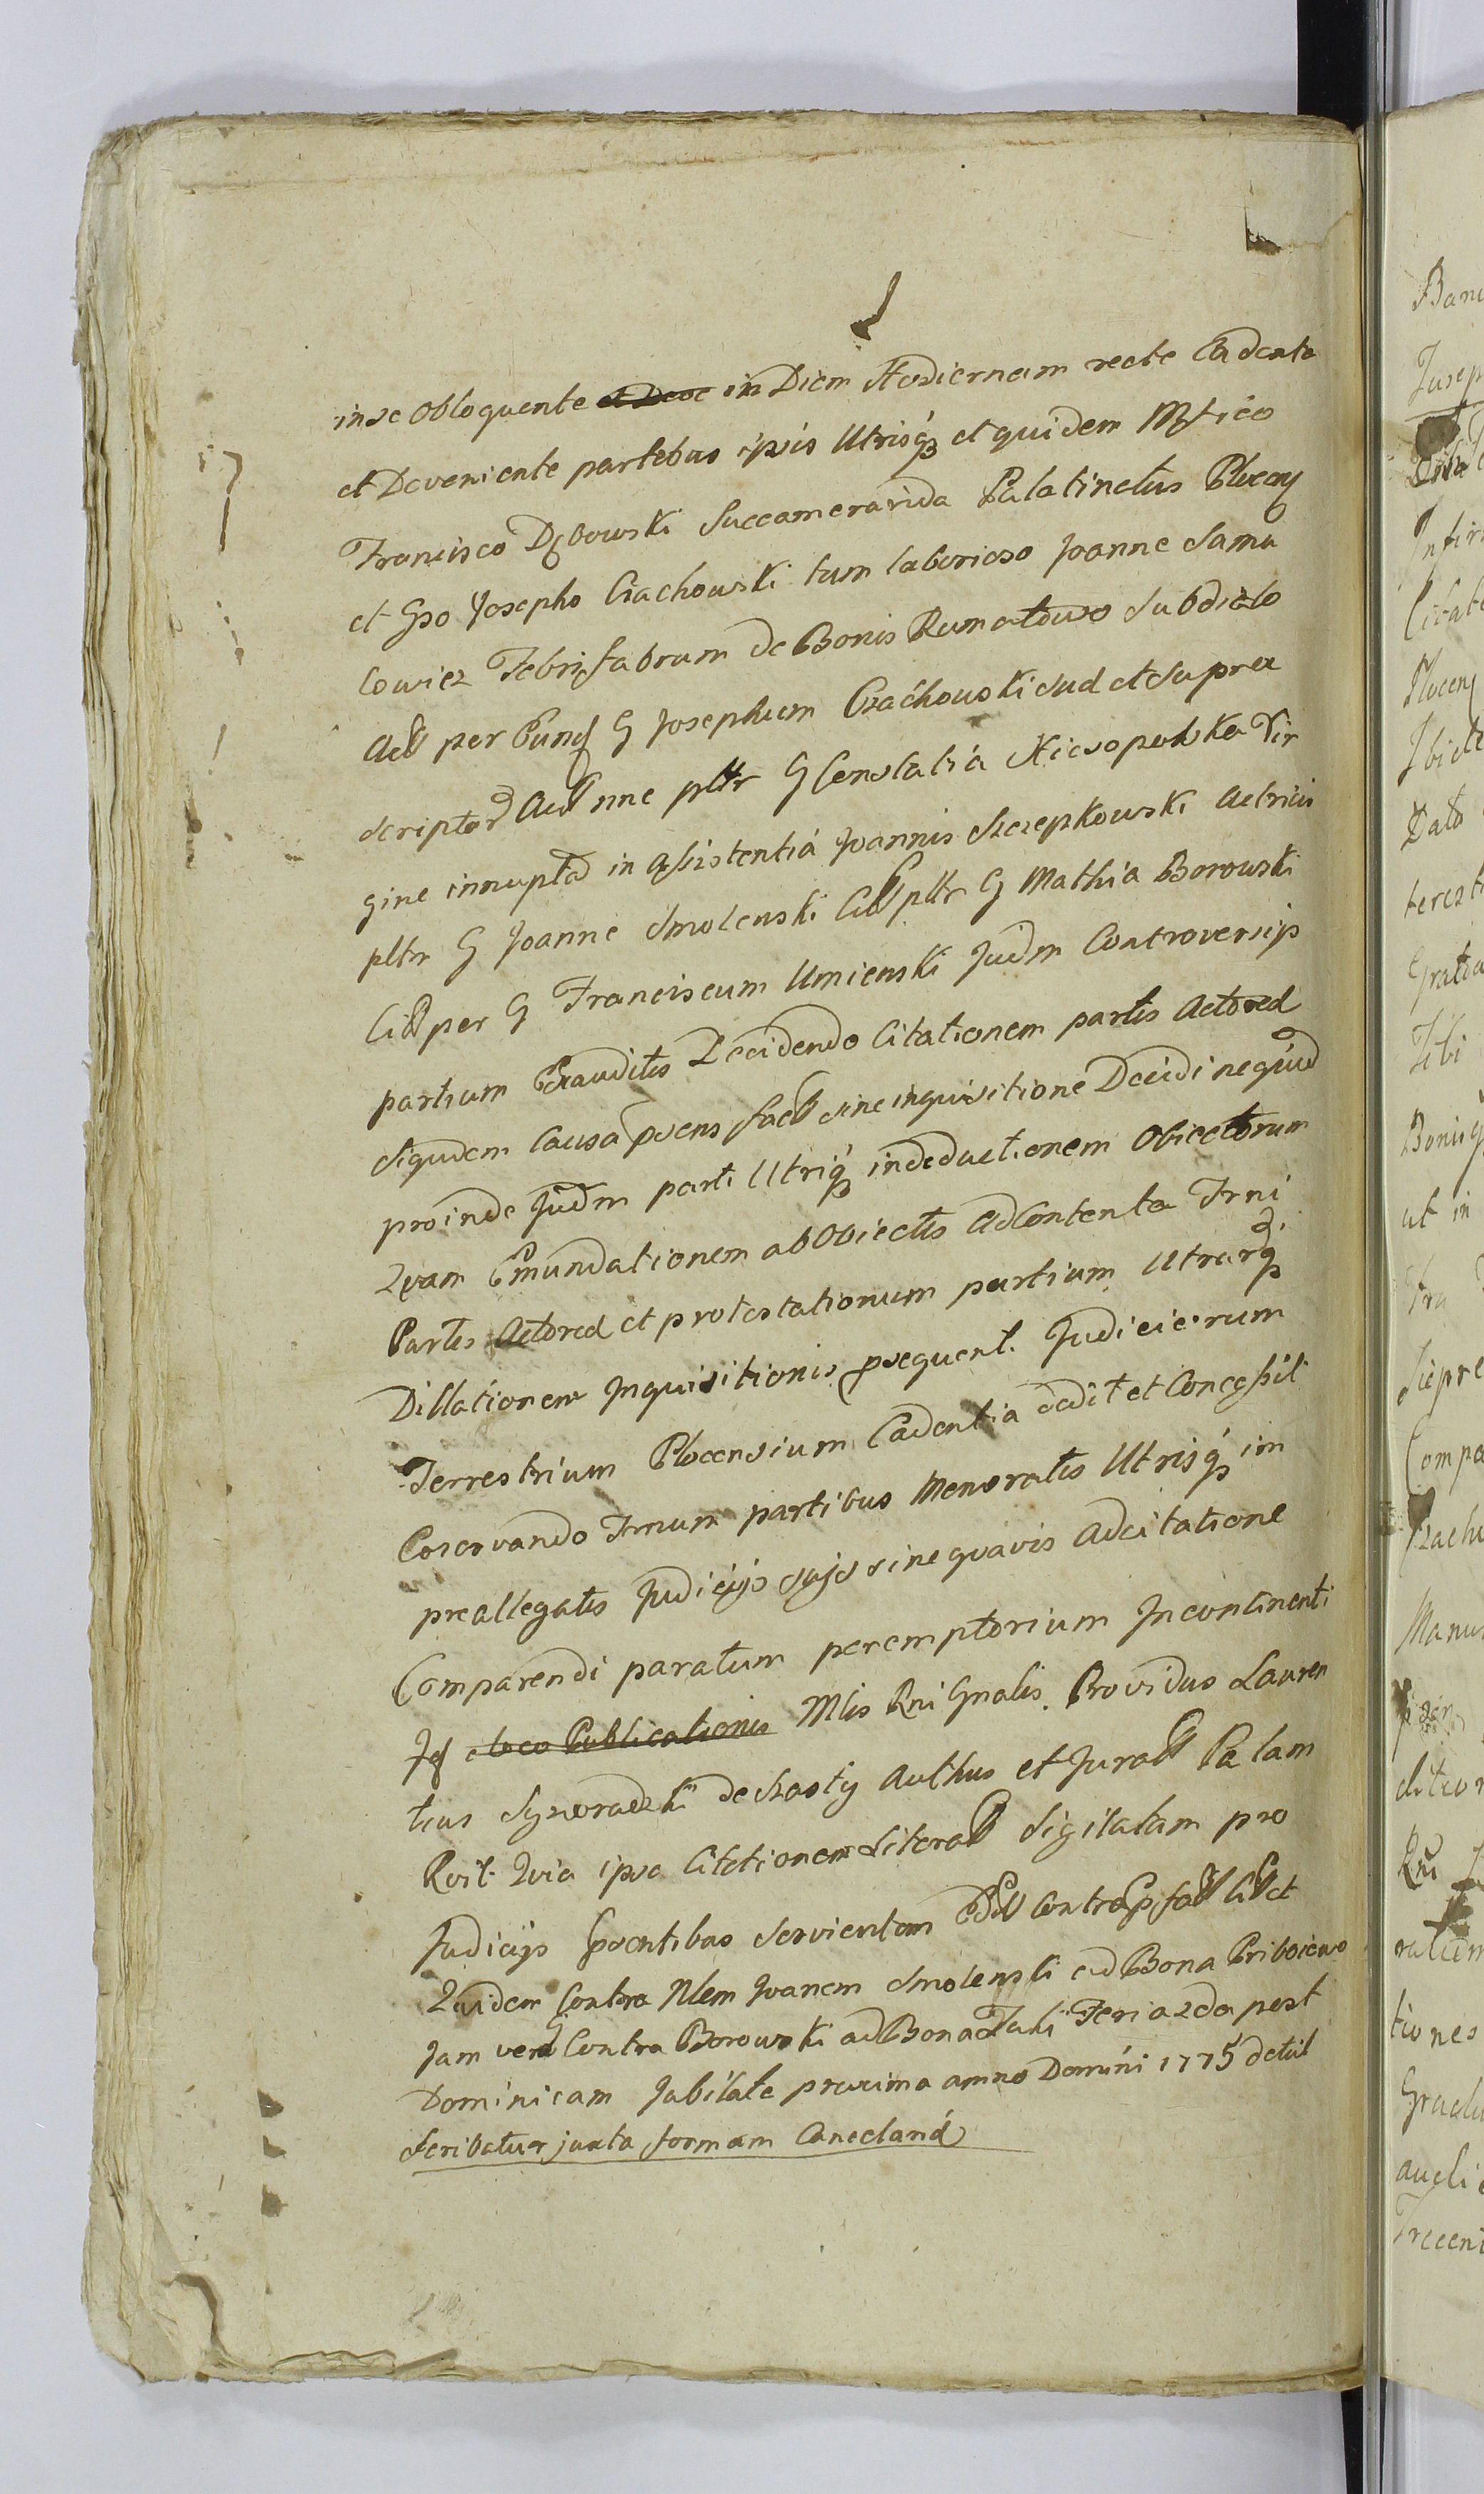 in se obloquente in Diem Hodiernam recte Cadente
et Deveniente partebus ipsis Utrisq3 et quidem Mfico
Francisco Dębowski Succamerarida Palatinatus Plocen
et Gso Josepho Czachowski tum laborioso Joanne Samu
lowicz Febrifabrum de Bonis Rumatowo Subdiclo
Act per Eund G Josephum Czachowski sud et supra
script Act nne pltr G Constatia Niesopolska Vir
gine innupta in Assistentia Joannis Szczepkowski Actrici
pltr G Joanne Smolenski Citt pltr G Mathia Borowski
Citt per G Franciscum Umienski Judm Controversijs
partium Exauditis Decidendo Citationem partis Actored
Siqudem Causa psens fact sine inquisitione Decidi nequid
proinde Judm parti Utriq3 in deductionem Obiectorum
Quam Emundationem ab Obiectis ad Contenta Trni
Partis Actored et protestationum partium Utrarq3
Dillationem Inquisitionis psequent. Judiciorum
Terrestrium Plocensium Cadentia dedit et Concessit
Coservando Trnum partibus Memoratis Utrisq3 im
preallegatis Judicijs sujs sine quavis adcitatione
Comparendi paratum peremptorium Incontinenti
loco Publicationis Mlis Rni Gnalis. Providus Lauren
tius Syworadzki de Szasty Authus et Jurat Palam
Rvit Quia ipse Citationem Literat Sigilatam pro
Judicijs psentibus Servientem Edit Contra Citt et
Quidem Contra Nlem Joanem Smolenski ad Bona Pribojewo
Jam vero Contra G Borowski ad Bona Feria 2da post
Dominicam Jubilate proxima anno Domini 1775 detul
Scribatur juxta formam Cancelariá
Banc
Josep
Infir
Citat
Plocen
Ibide
Dato
terest
Grata
Tibi
Bonisq
ut in
Siepre
Compa
Czach
Manu
ditio
Rni
ratiem
tiones
Gradu
audi
Treceni